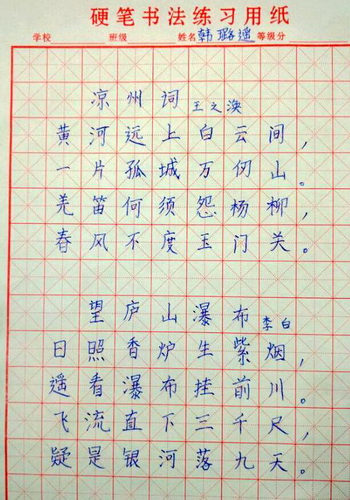 硬笔书法练习用纸
学校 班级 姓名 韩璐遥 等级分
凉州词 王之涣
黄河远上白云间，
一片孤城万仞山。
羌笛何须怨杨柳，
春风不度玉门关。
望庐山瀑布 李白
日照香炉生紫烟，
遥看瀑布挂前川。
飞流直下三千尺，
疑是银河落九天。